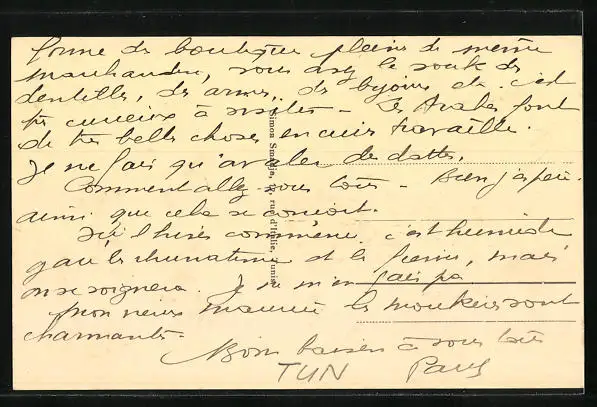 forme de boutique pleine de même
marchandise, vous avez le souk des
dentelles, des armes, des bijoux etc. c'est
très curieux à visiter – Les Arabes font
de très belles choses en cuir travaillé.
Je ne fais qu'avaler des dattes.
Comment allez vous tous – Bien j'espère.
ainsi que cela se conçoit.
Ici l'hiver commence c'est humide
gare les rhumatismes et la fièvre, mais
on se soignera. Je ne m'en fais pas
mon vieux Maurice les moukères sont
charmantes.
Mon baiser à vous tous
TUN Paul
Simon Smadja, rue d'Italie, Tunis